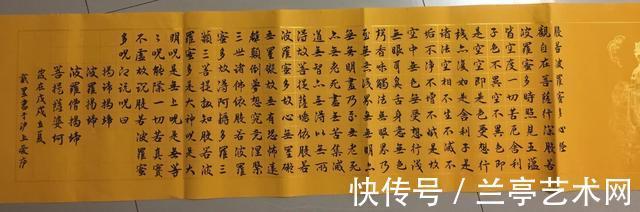 般若波羅蜜多心經
觀自在菩薩行深般若
波羅蜜多時照見五蘊
皆空度一切苦厄舍利
子色不異空空不異色色即
是空空即是色受想行
識亦復如是舍利子是
諸法空相不生不滅不
垢不淨不增不減是故
空中無色無受想行識
無眼耳鼻舌身意無色
聲香味觸法無眼界乃
至無意識界無無明亦
無無明盡乃至無老死
亦無老死盡無苦集滅
道無智亦無得以無所
得故菩提薩埵依般若
波羅蜜多故心無罣礙
無罣礙故無有恐怖遠
離顛倒夢想究竟涅槃
三世諸佛依般若波羅
蜜多故得阿耨多羅三
藐三菩提故知般若波
羅蜜多是大神咒是大
明咒是無上咒是無等
等咒能除一切苦真實
不虛故說般若波羅蜜
多咒即說咒曰
揭諦揭諦
波羅揭諦
波羅僧揭諦
菩提薩婆訶
歲在戊戌立夏
快传号 / 兰亭艺术网